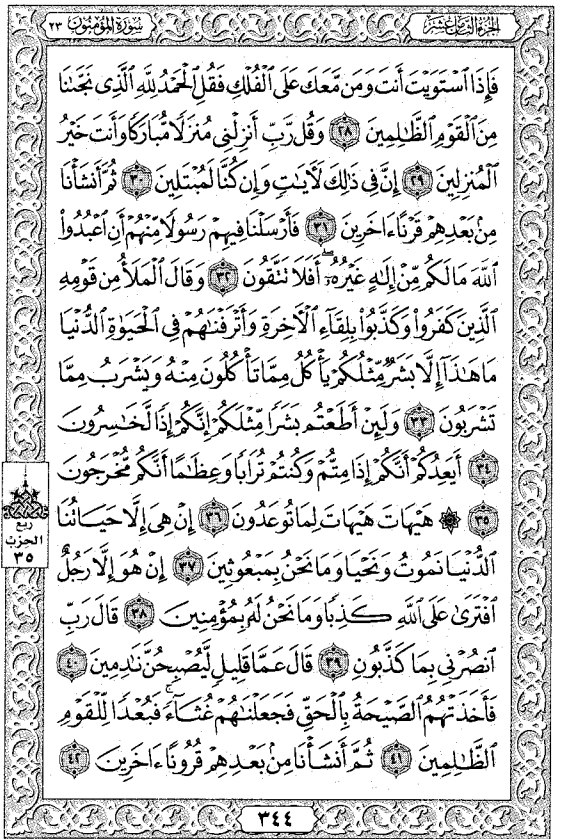 سُورَةُ المُؤْمِنُونَ ٢٣
الجُزْءُ الثَّامِنَ عَشَرَ
فَإِذَا ٱسْتَوَيْتَ أَنتَ وَمَن مَّعَكَ عَلَى ٱلْفُلْكِ فَقُلِ ٱلْحَمْدُ لِلَّهِ ٱلَّذِى نَجَّىٰنَا
مِنَ ٱلْقَوْمِ ٱلظَّٰلِمِينَ ٢٨ وَقُل رَّبِّ أَنزِلْنِى مُنزَلًا مُّبَارَكًا وَأَنتَ خَيْرُ
ٱلْمُنزِلِينَ ٢٩ إِنَّ فِى ذَٰلِكَ لَءَايَٰتٍ وَإِن كُنَّا لَمُبْتَلِينَ ٣٠ ثُمَّ أَنشَأْنَا
مِنۢ بَعْدِهِمْ قَرْنًا ءَاخَرِينَ ٣١ فَأَرْسَلْنَا فِيهِمْ رَسُولًا مِّنْهُمْ أَنِ ٱعْبُدُوا۟
ٱللَّهَ مَا لَكُم مِّنْ إِلَٰهٍ غَيْرُهُۥٓ أَفَلَا تَتَّقُونَ ٣٢ وَقَالَ ٱلْمَلَأُ مِن قَوْمِهِ
ٱلَّذِينَ كَفَرُوا۟ وَكَذَّبُوا۟ بِلِقَآءِ ٱلْءَاخِرَةِ وَأَتْرَفْنَٰهُمْ فِى ٱلْحَيَوٰةِ ٱلدُّنْيَا
مَا هَٰذَآ إِلَّا بَشَرٌ مِّثْلُكُمْ يَأْكُلُ مِمَّا تَأْكُلُونَ مِنْهُ وَيَشْرَبُ مِمَّا
تَشْرَبُونَ ٣٣ وَلَئِنْ أَطَعْتُم بَشَرًا مِّثْلَكُمْ إِنَّكُمْ إِذًا لَّخَٰسِرُونَ
٣٤ أَيَعِدُكُمْ أَنَّكُمْ إِذَا مِتُّمْ وَكُنتُمْ تُرَابًا وَعِظَٰمًا أَنَّكُم مُّخْرَجُونَ
٣٥ ۞ هَيْهَاتَ هَيْهَاتَ لِمَا تُوعَدُونَ ٣٦ إِنْ هِىَ إِلَّا حَيَاتُنَا
ٱلدُّنْيَا نَمُوتُ وَنَحْيَا وَمَا نَحْنُ بِمَبْعُوثِينَ ٣٧ إِنْ هُوَ إِلَّا رَجُلٌ
ٱفْتَرَىٰ عَلَى ٱللَّهِ كَذِبًا وَمَا نَحْنُ لَهُۥ بِمُؤْمِنِينَ ٣٨ قَالَ رَبِّ
ٱنصُرْنِى بِمَا كَذَّبُونِ ٣٩ قَالَ عَمَّا قَلِيلٍ لَّيُصْبِحُنَّ نَٰدِمِينَ ٤٠
فَأَخَذَتْهُمُ ٱلصَّيْحَةُ بِٱلْحَقِّ فَجَعَلْنَٰهُمْ غُثَآءً ۚ فَبُعْدًا لِّلْقَوْمِ
ٱلظَّٰلِمِينَ ٤١ ثُمَّ أَنشَأْنَا مِنۢ بَعْدِهِمْ قُرُونًا ءَاخَرِينَ ٤٢
ربع
الحزب
٣٥
٣٤٤